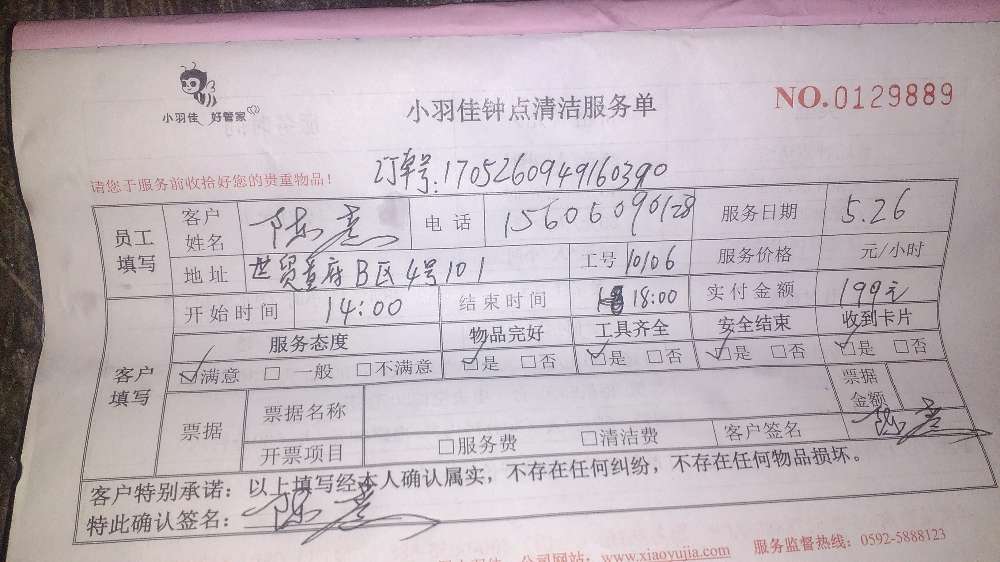 小羽佳 好管家
小羽佳钟点清洁服务单
NO.0129889
请您于服务前收拾好您的贵重物品！
订单号:1705260949160390
员工填写 客户姓名 陈意 电话 15606090128 服务日期 5.26
地址 世贸首府B区4号101 工号 10106 服务价格 元/小时
开始时间 14:00 结束时间 18:00 实付金额 199元
客户填写 服务态度 物品完好 工具齐全 安全结束 收到卡片
☑满意 □ 一般 □不满意 ☑是 □否 ☑是 □否 ☑是 □否 ☑是 □否
票据 票据名称 票据金额
开票项目 □服务费 □清洁费 客户签名 陈意
客户特别承诺：以上填写经本人确认属实，不存在任何纠纷，不存在任何物品损坏。
特此确认签名：陈意
公司网站：www.xiaoyujia.com 服务监督热线：0592-5888123